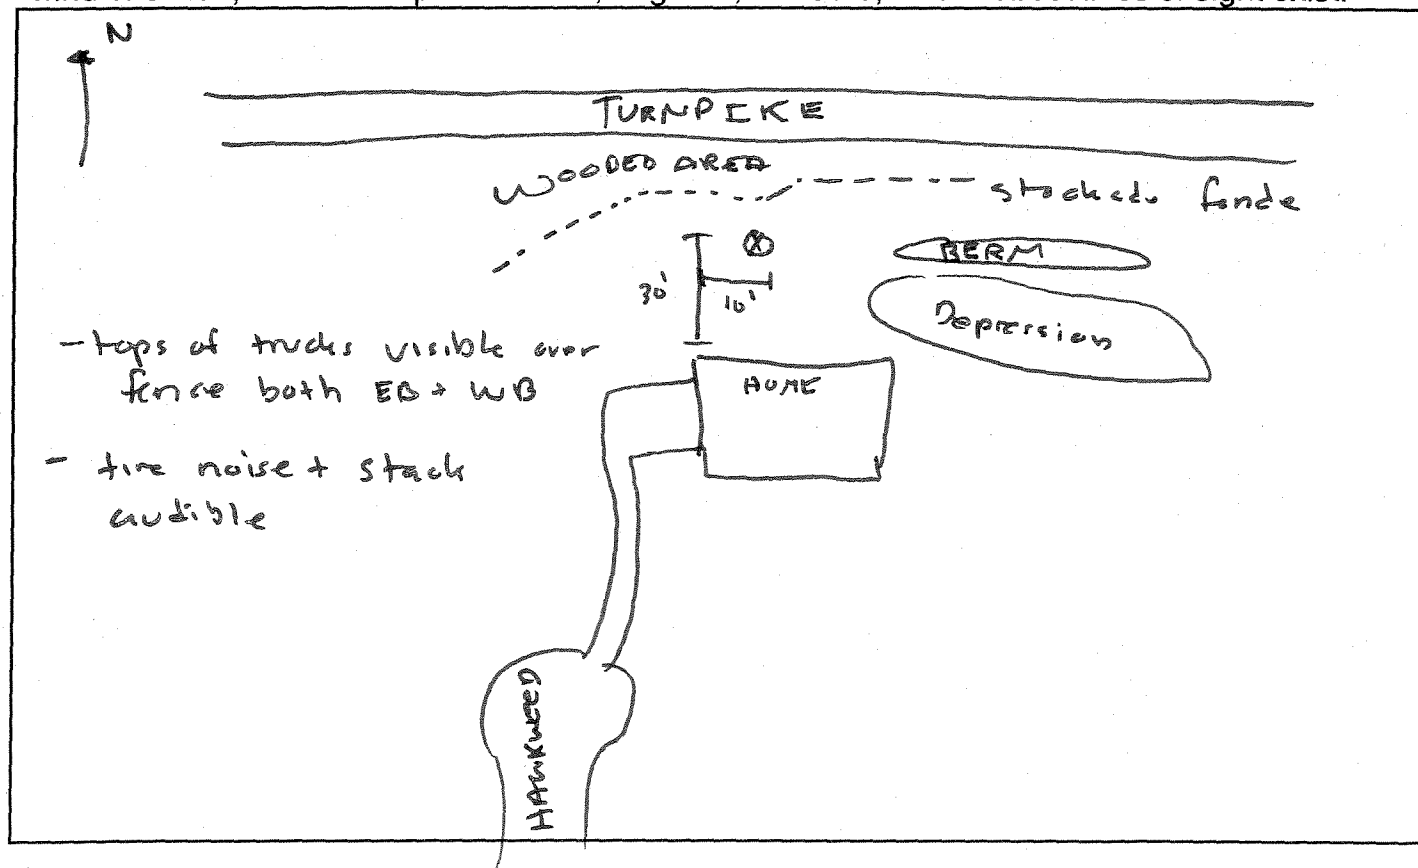 N
TURNPIKE
WOODED AREA
stockade fence
BERM
30'
10'
Depression
- tops of trucks visible over
fence both EB + WB
HOME
- tire noise + stack
audible
HAWKWEED